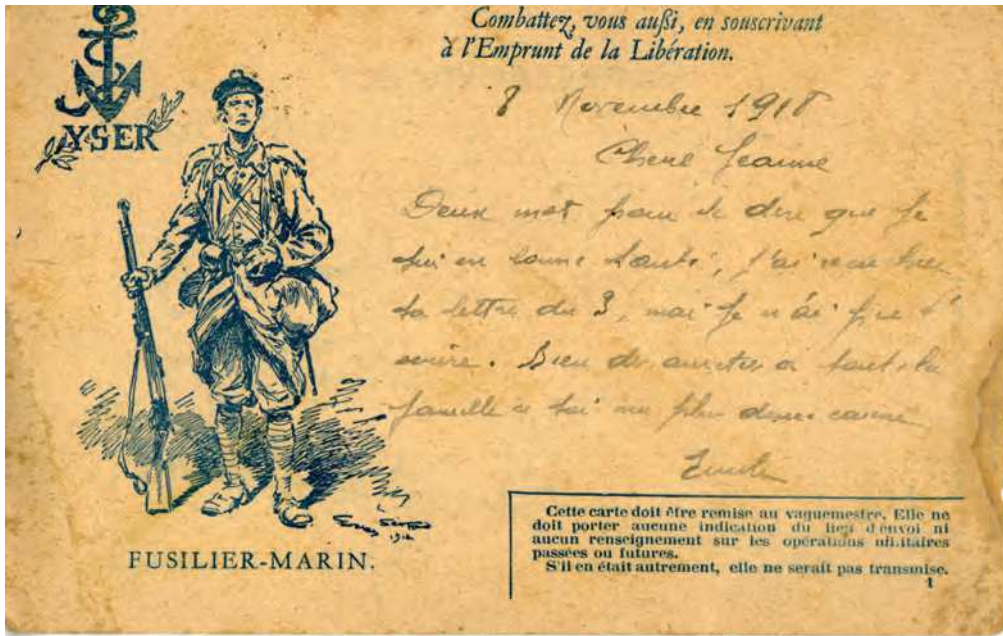 Combattez, vous außi, en souscrivant
à l'Emprunt de la Libération.
YSER
8 Novembre 1918
Cherie Jeanne
Deux mot pour te dire que je
sui en bonne santé, j'ai recu bien
ta lettre du 3, mai je n'ai pu t'
ecrire. Bien des amities a toute la
famille a toi me plus douce caresse
Emile
1918
FUSILIER-MARIN.
Cette carte doit être remise au vaguemestre. Elle ne
doit porter aucune indication du lieu d'envoi ni
aucun renseignement sur les opérations militaires
passées ou futures.
S'il en était autrement, elle ne serait pas transmise.
1